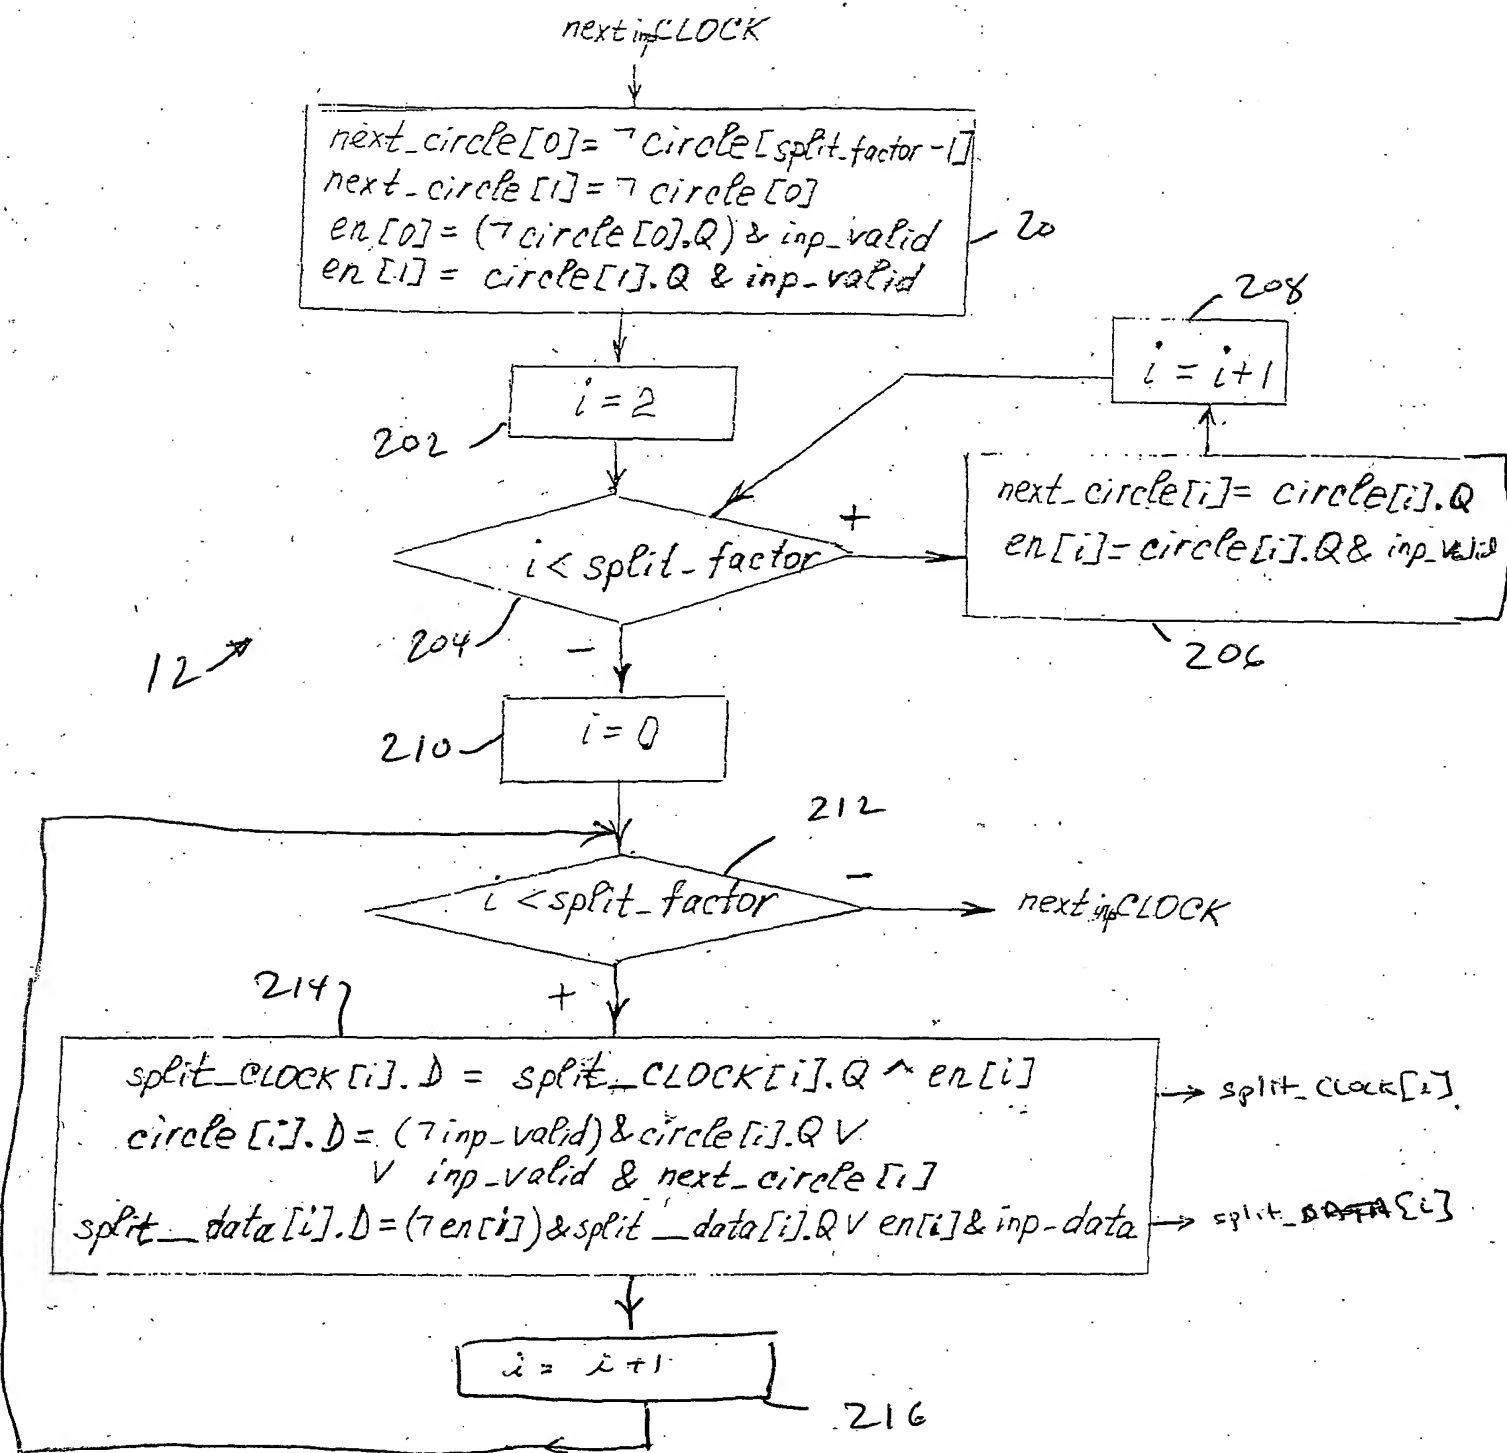 next inp CLOCK
next_circle[0]= ¬ circle[split_factor-1]
next_circle[1]= ¬ circle[0]
en[0]= (¬circle[0].Q) & inp_valid
en[1]= circle[1].Q & inp_valid
20
208
i = i+1
i = 2
202
next_circle[i]= circle[i].Q
en[i]=circle[i].Q & inp_valid
+
i < split_factor
204
-
206
12
i = 0
210
212
i < split_factor
-
next inp CLOCK
214
+
split_CLOCK[i].D = split_CLOCK[i].Q ^ en[i]
split_CLOCK[i]
circle[i].D= (¬inp_valid)&circle[i].Q V
V inp_valid & next_circle[i]
split_data[i].D=(¬en[i])&split_data[i].Q V en[i]&inp-data
split_DATA[i]
i = i+1
216